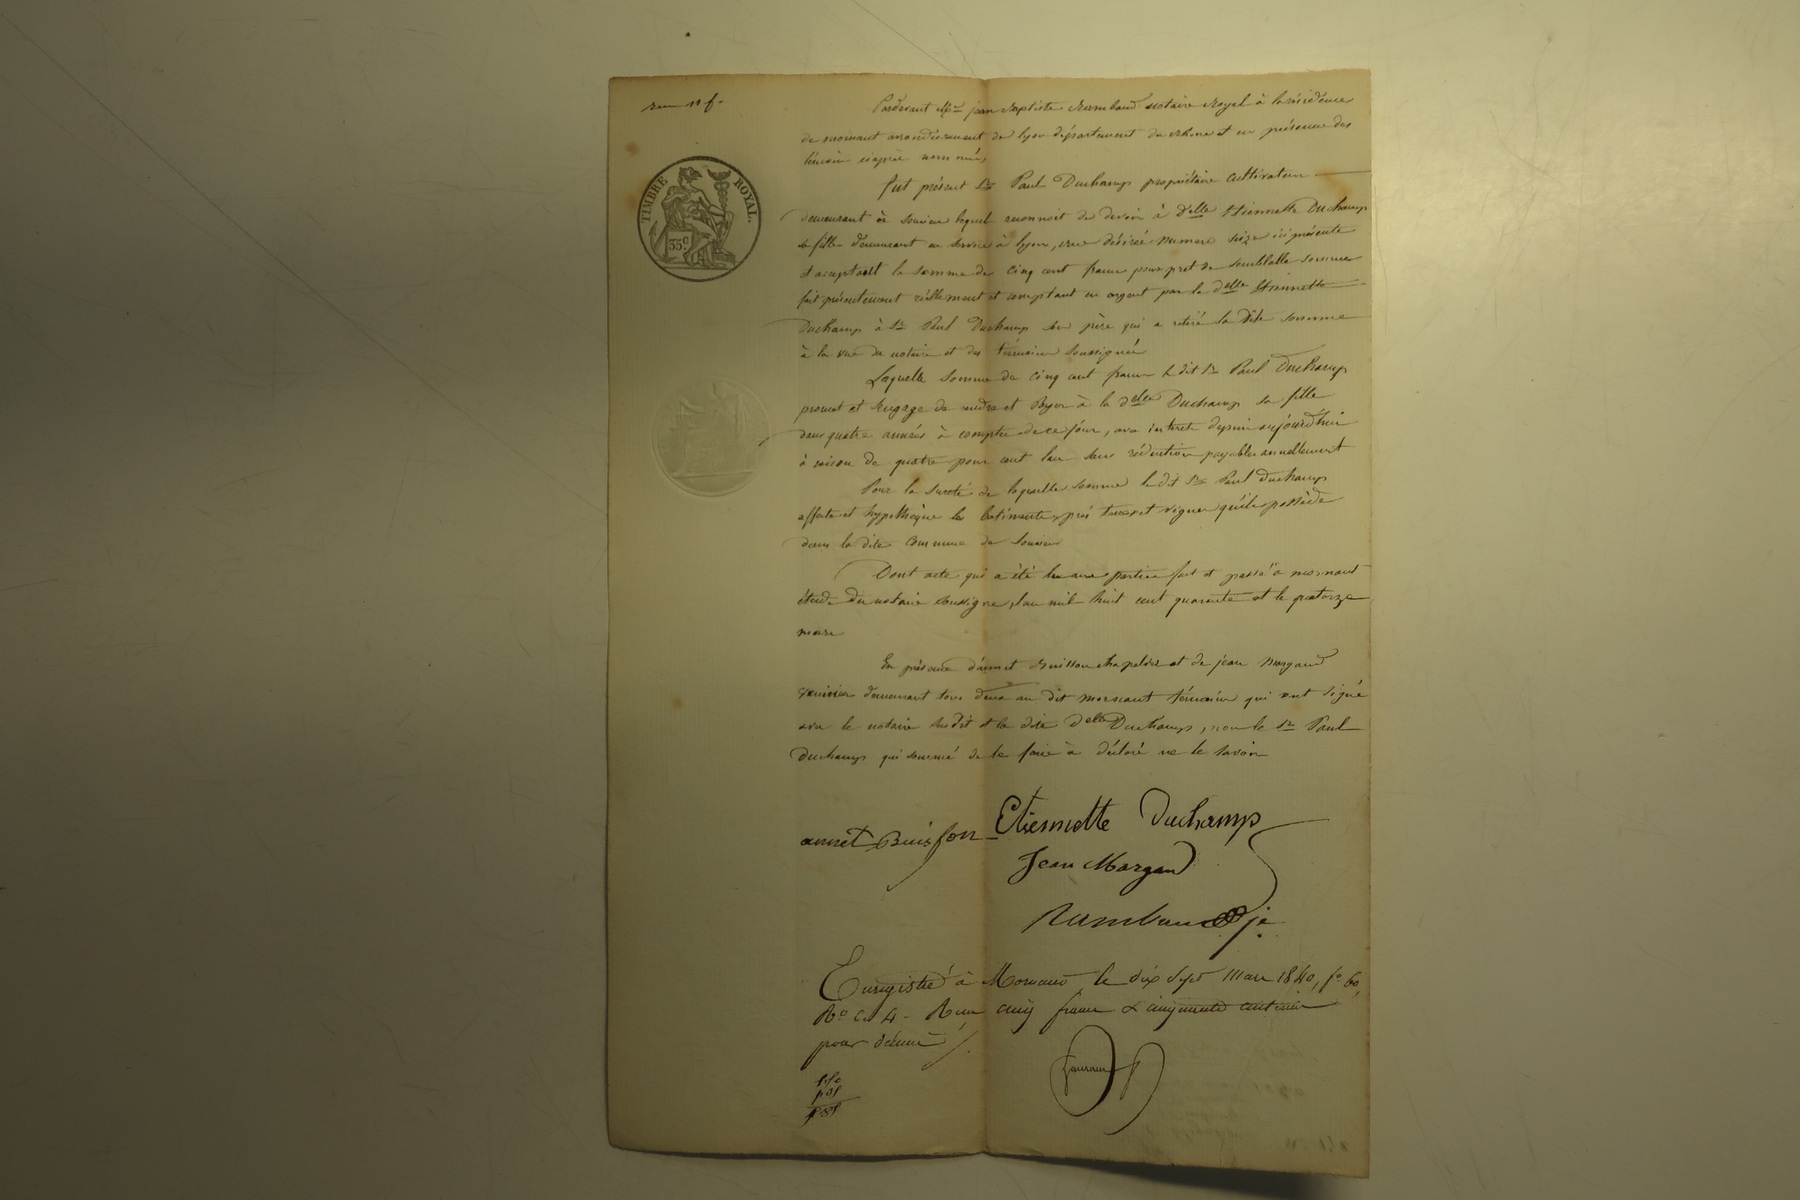 TIMBRE ROYAL.
35c
Pardevant Me jean Baptiste Rambaud notaire Royal à la résidence
de mornant arrondissement de lyon département du rhone et en présence des
témoins ciaprès nommés,
fut présent Sr Paul Duchamp propriétaire cultivateur
demeurant à Soucieu lequel reconnoit de devoir à delle Etiennette Duchamp
sa fille demeurant en service à lyon, rue désirée numero seize ici présente
et acceptant la somme de cinq cent francs pour pret de semblable somme
fait présentement réellement et comptant en argent par la delle Etiennette
Duchamp à Sr Paul Duchamp son père qui a retiré la dite somme
à la vue du notaire et des témoins soussignés
Laquelle somme de cinq cent francs le dit Sr Paul Duchamp
promet et s'engage de rendre et payer à la delle Duchamp sa fille
dans quatre années à compter de ce jour, avec interet depuis aujourd'hui
à raison de quatre pour cent l'an sans réduction payables annuellement
Pour la sureté de laquelle somme le dit Sr Paul Duchamp
affecte et hypothèque les batiments, prés terres et vignes qu'il possède
dans la dite commune de Soucieu
Dont acte qui a été lu aux parties fait et passé à mornant
étude du notaire soussigné, l'an mil huit cent quarante et le quatorze
mars
En présence d'annet Buisson chapelier et de jean Margand
demeurant tous deux au dit mornant témoins qui ont signé
avec le notaire susdit et la dite delle Duchamp, non le Sr Paul
Duchamp qui sommé de le faire à déclaré ne le savoir
annet Buisson Etiennette Duchamp
Jean Margand
Rambaud je
Enregistré à Mornant le dix sept mars 1840, fo 60,
Ro c. 4. Reçu cinq francs & cinquante centimes
pour décime